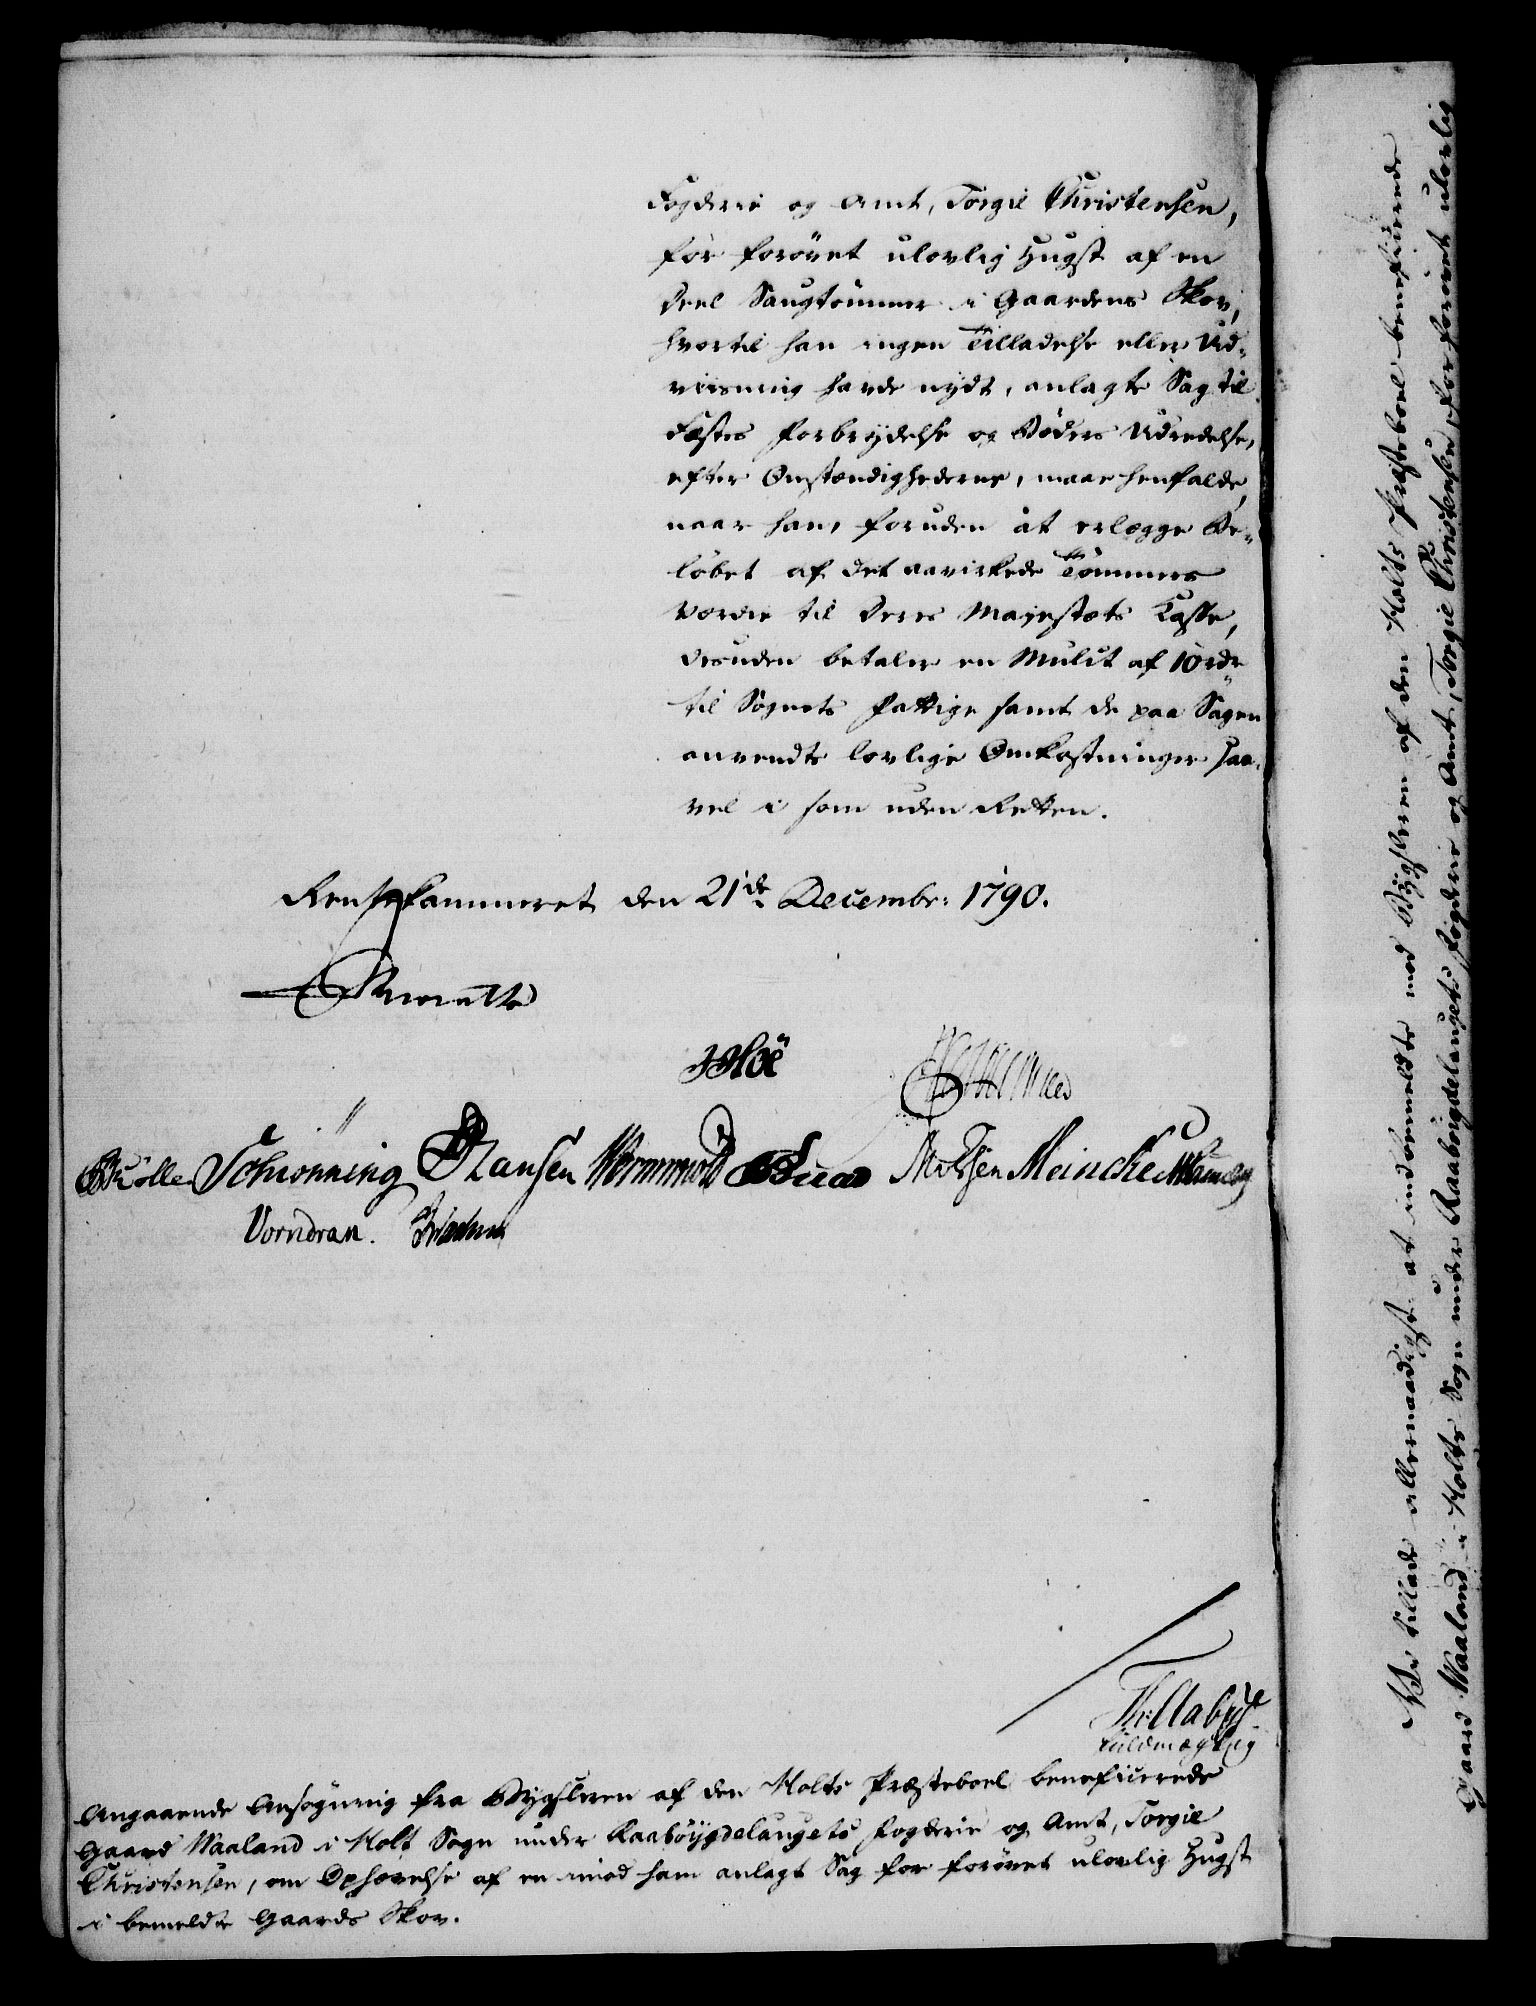 Fogderie og Amt, Torgie Christensen,
for forövet ulovlig Hugst af en
Deel Saugtömmer i Gaardens Skov,
hvortil han ingen Tilladelse eller Ud-
viisning havde nydt, anlagte Sag til
Fæstes Forbrydelse og Böders Udredelse,
efter Omstændighederne, maae henfalde,
naar han, foruden at erlægge Be-
löbet af det aavirkede Tömmers
Værdie til Deres Majestæts Casse,
desuden betaler en Mulct af 10 rdr
til Sognets Fattige samt de paa Sagen
anvendte lovlige Omkostninger saa-
vel i som uden Retten.
Rentekammeret den 21de Decembr: 1790.
Hoë
Schiönning Hansen Wormskiold Meincke
Vorndran.
Fuldmægtig
Angaaende Ansøgning fra Bygsleren af den Holts Præsteboel beneficerede
Gaard Waaland i Holt Sogn under Raabøygdelaugets Fogderie og Amt, Torgie
Christensen, om Ophævelse af en imod ham anlagt Sag for forövet ulovlig Hugst
i bemeldte Gaards Skov.
Vi tillade allernaadigst at indbemeldte mod Bygsleren af den Holts Præsteboel beneficerede
Gaard Waaland i Holts Sogn under Raabøigdelaugets Fogderie og Amt, Torgie Christensen, for forövet ulovlig